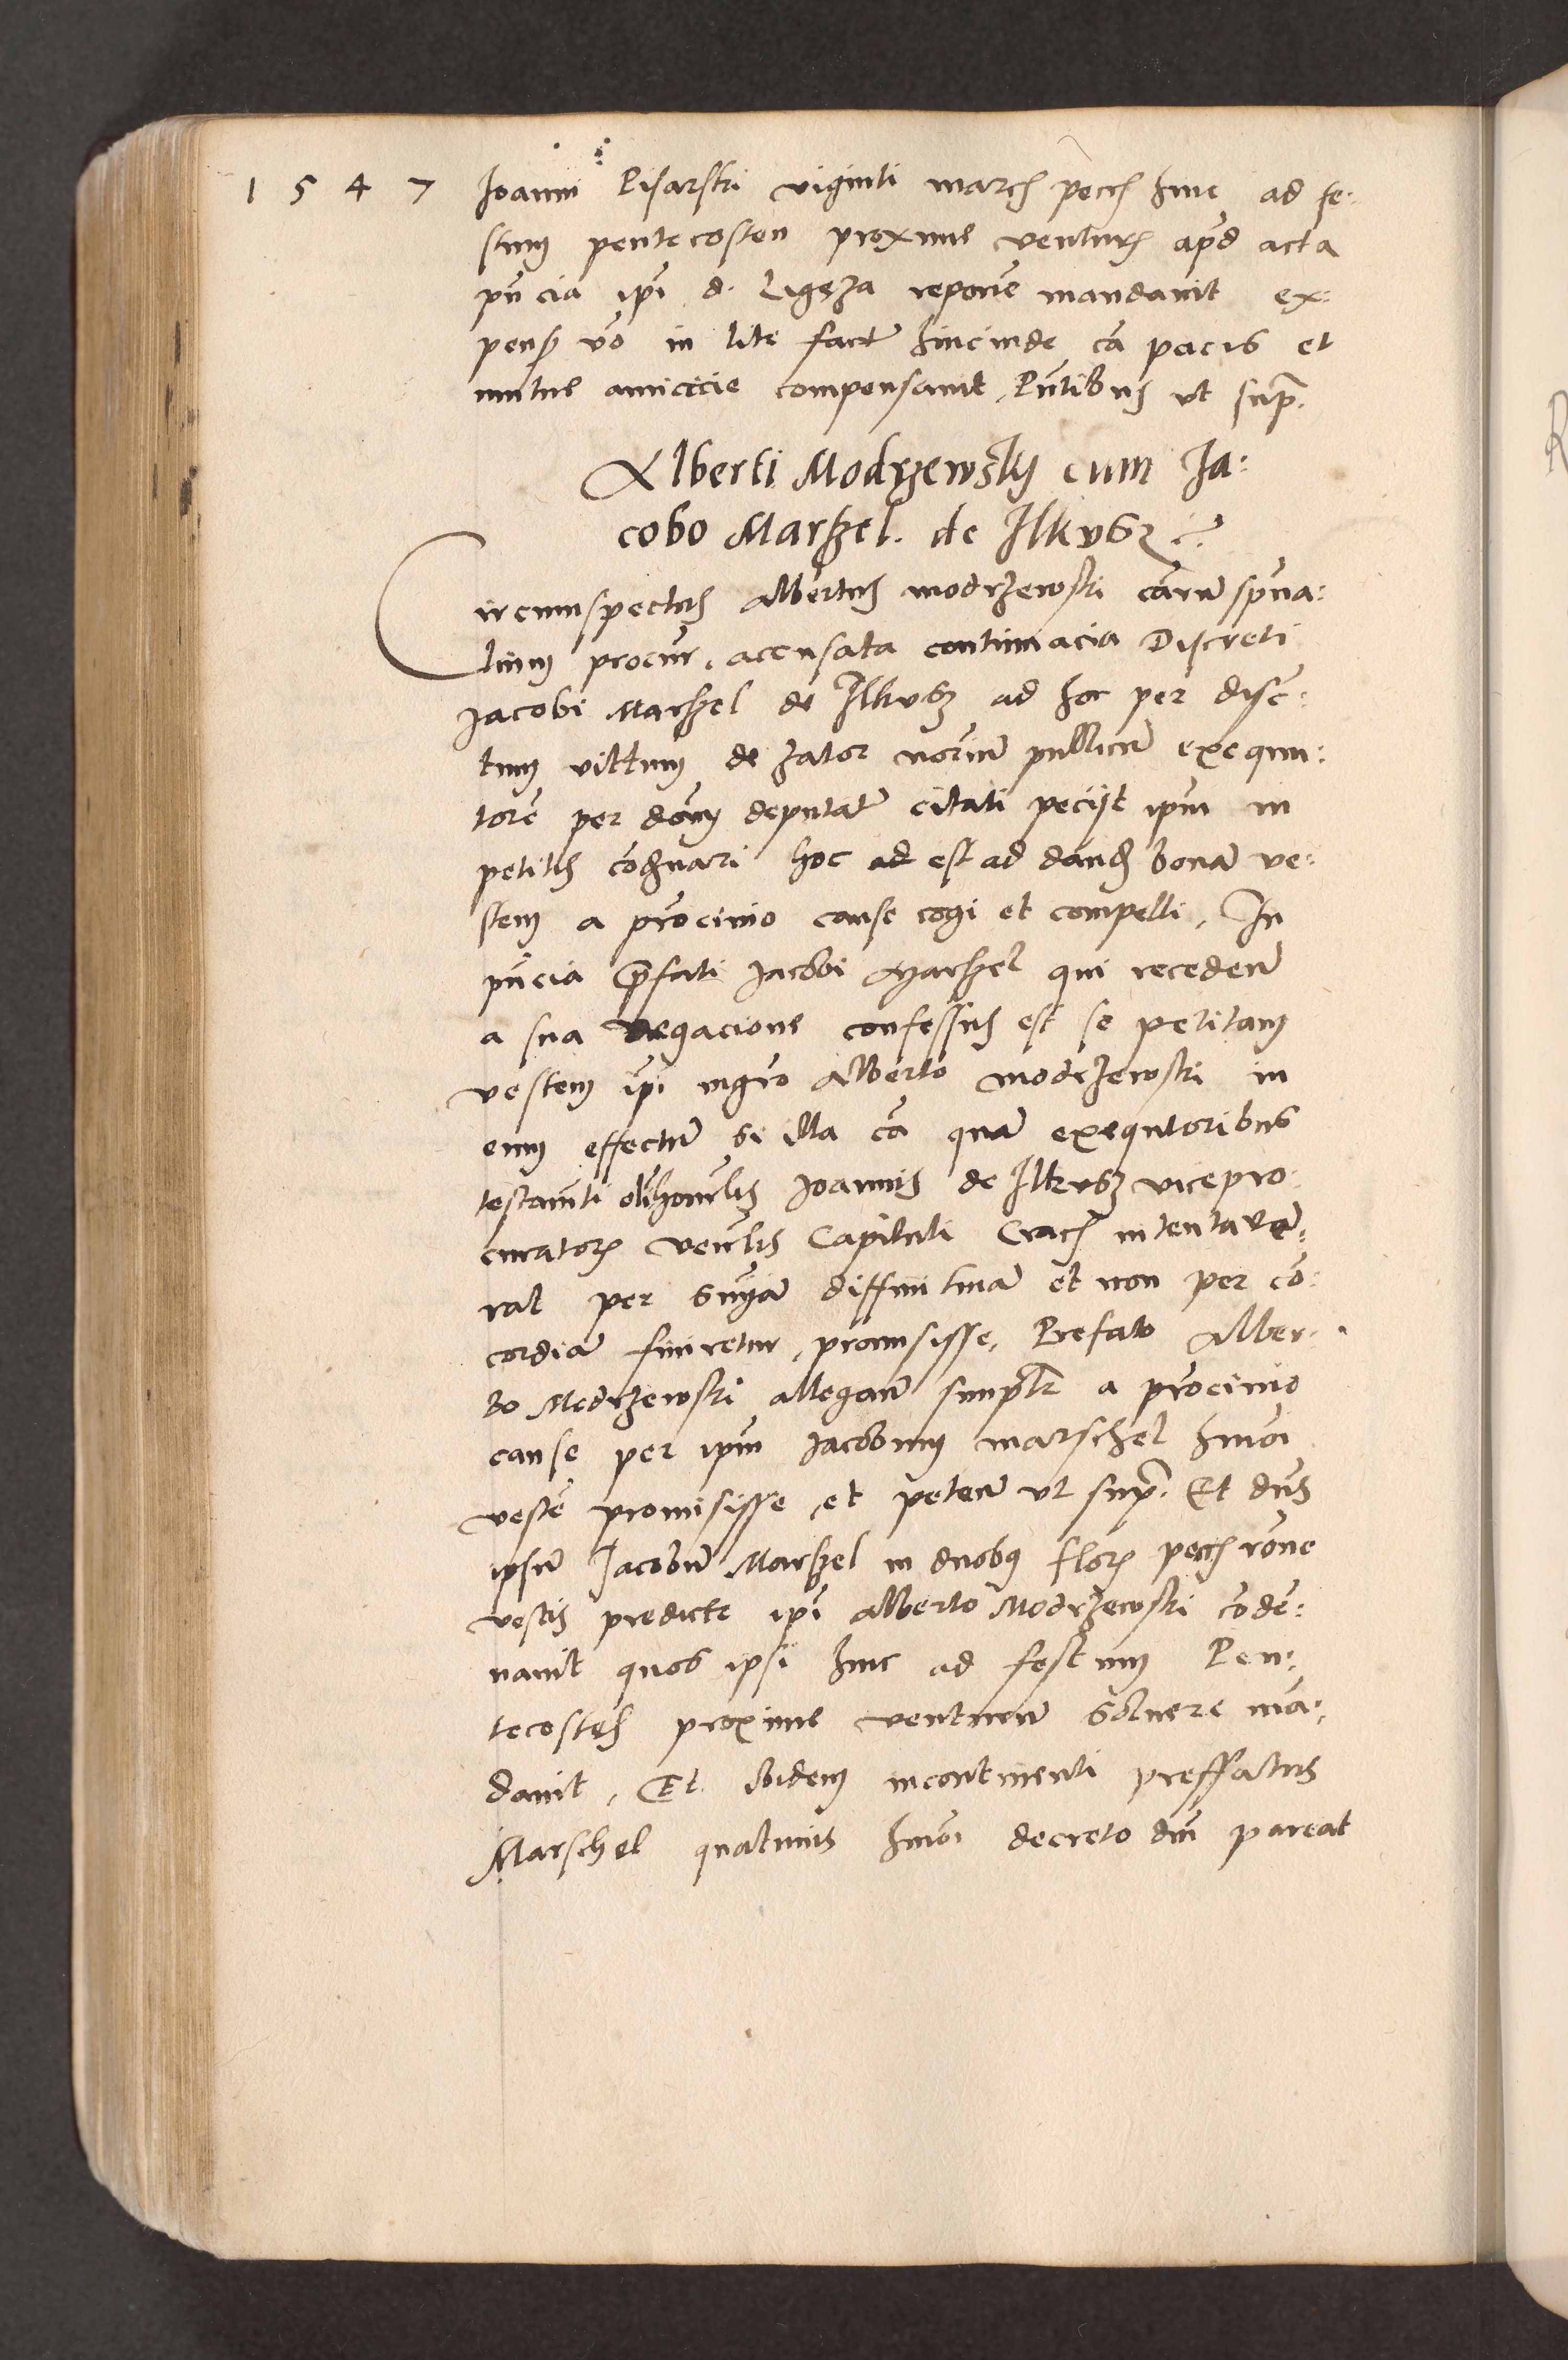 1 5 4 7
Joanni Pisarski viginti march pecch hinc ad fe:
stum pentecosten proxime venturu apd acta
pncia ipi d. Ligęza repone mandavit ex:
pens vo in lite fact hincinde ca pacis et
mutue amicicie compensavit, Pntibus ut supra
Alberti Modrzewsky cum Ja:
cobo Marszel. de Ilkusz
Circumspectus Albertus modrzewski carum spua:
lium procur. accusata contumacia Discreti
Jacobi Marszel de Ilkusz ad hoc per discre:
tum vittum de zator norium publicu exequu:
tore per dom deputat citati peciit ipm in
petitis codemnari hoc ad est ad dand bona ve:
stem a procinio cause cogi et compelli, In
pncia prefati Jacobi Marszel qui recedens
a sua negacione confessus est se petitam
vestem ipi mgro Alberto modrzewski in
eum effectu si illa ca qua exequtoribus
testamti olim honrlis Joannis de Ilkusz vicepro
curatoris venrlis Capituli Crach intentave:
rat per snia diffinitiva et non per co:
cordia finiretur, promisisse, Prefato Alber:
to Modrzewski allegan simplr a procinio
cause per ipm Jacobum marschel hmoi
veste promisisse, et peten ut supra. Et dns
ipsu Jacobu Marszel in duobus flor pecch rone
vestis predicte ipi Alberto Modrzewski code:
navit quos ipsi hinc ad festum Pen:
tecostes proxime venturu solvere ma:
davit, Et ibidem incontinenti preffatus
Marschel quatinus hmoi decreto dni pareat